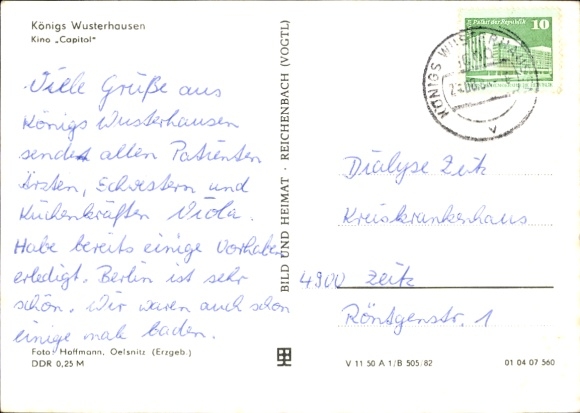 Königs Wusterhausen
Kino „Capitol"
Viele Grüße aus
Königs Wusterhausen
sendet allen Patienten
Ärzten, Schwestern und
Küchenkräften Viola.
Habe bereits einige Vorhaben
erledigt. Berlin ist sehr
schön. Wir waren auch schon
einige mal baden.
Foto: Hoffmann, Oelsnitz (Erzgeb.)
DDR 0,25 M
BILD UND HEIMAT · REICHENBACH (VOGTL)
Palast der Republik 10
KÖNIGS WUSTERHAUSEN
v
Dialyse Zeitz
Kreiskrankenhaus
4900 Zeitz
Röntgenstr. 1
V 11 50 A 1/B 505/82
01 04 07 560